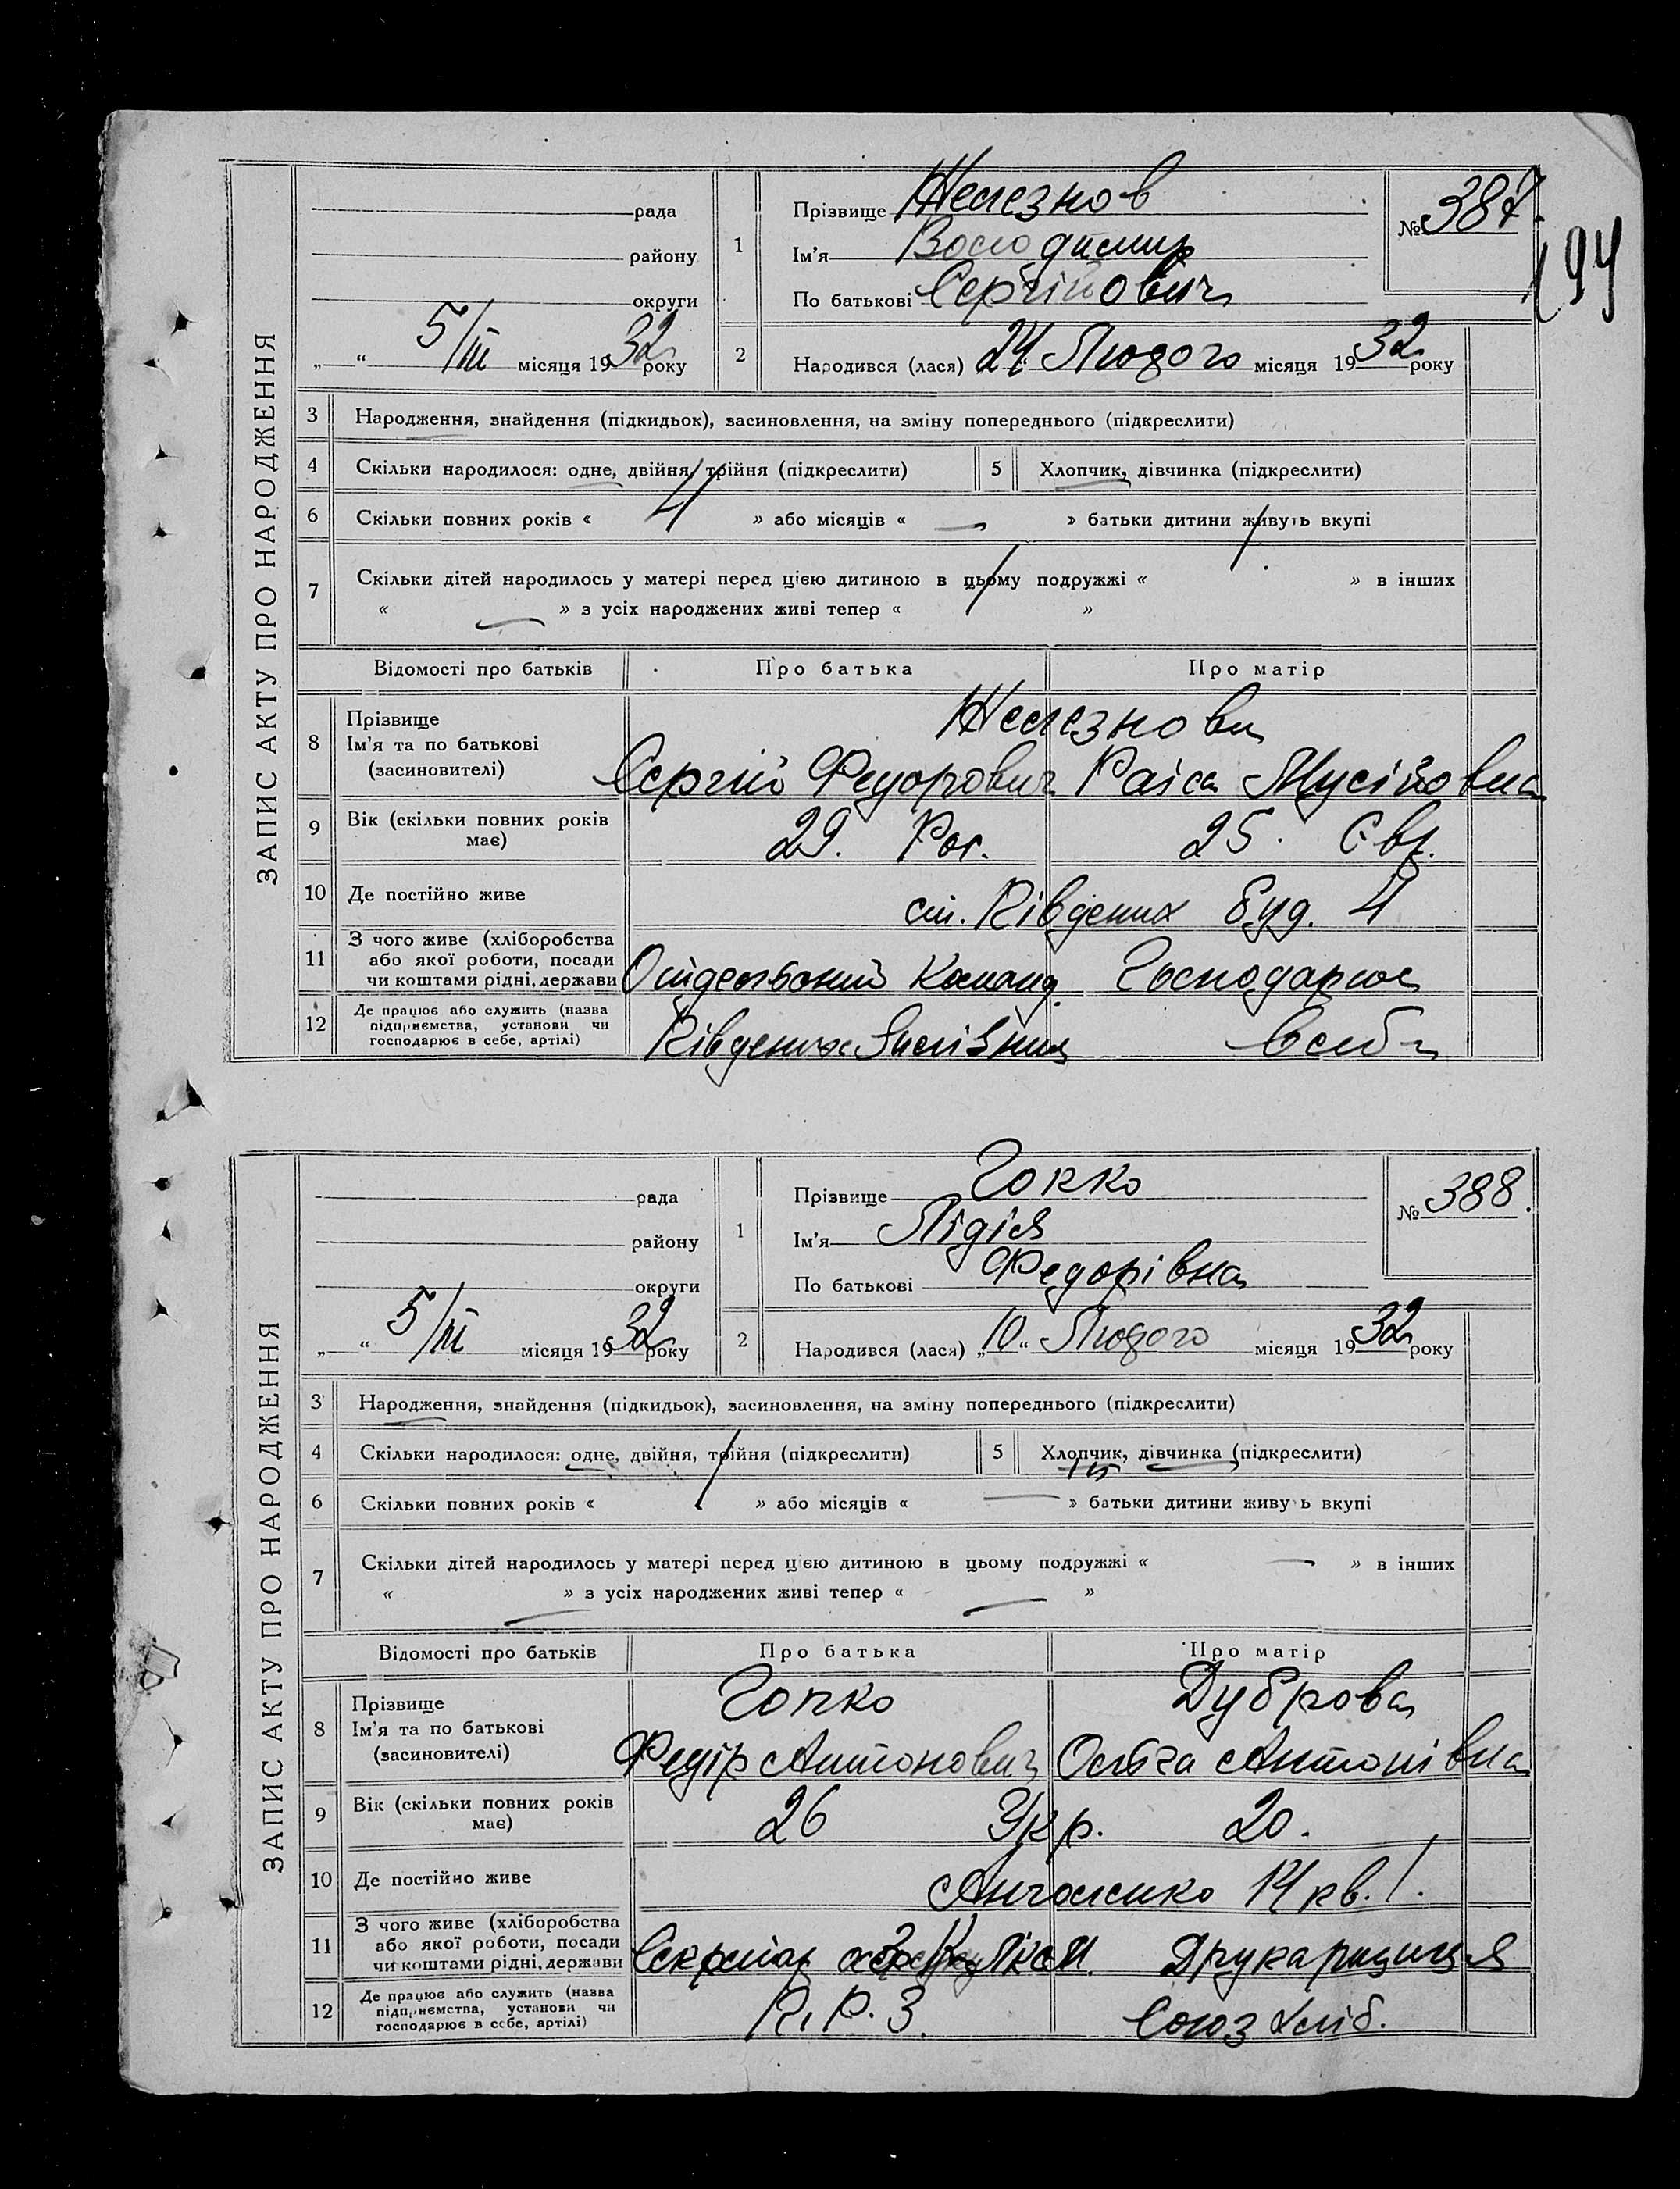 ЗАПИС АКТУ ПРО НАРОДЖЕННЯ
рада
району
округи
„ “ 5/III місяця 1932 року
1
Прізвище Железнов
Ім'я Володимир
По батькові Сергійович
№ 387.
194
2 Народився (лася) 24 Лютого місяця 1932 року
3 Народження, знайдення (підкидьок), засиновлення, на зміну попереднього (підкреслити)
4 Скільки народилося: одне, двійня, трійня (підкреслити)
5 Хлопчик, дівчинка (підкреслити)
6 Скільки повних років « 4 » або місяців « — » батьки дитини живуть вкупі
7 Скільки дітей народилось у матері перед цією дитиною в цьому подружжі « » в інших
« — » з усіх народжених живі тепер « »
Відомості про батьків Про батька Про матір
8 Прізвище
Ім'я та по батькові
(засиновителі)
Железнови
Сергій Федорович Раіса Мусіївна
9 Вік (скільки повних років має)
29. Рос. 25. Євр.
10 Де постійно живе
ст. Південих буд. 4
11 З чого живе (хліборобства або якої роботи, посади чи коштами рідні, держави
Команд. Господарює
12 Де працює або служить (назва підприємства, установи чи господарює в себе, артілі)
Південих Залізниц в себе
ЗАПИС АКТУ ПРО НАРОДЖЕННЯ
рада
району
округи
„ “ 5/III місяця 1932 року
1
Прізвище Гопко
Ім'я Лідія
По батькові Федорівна
№ 388.
2 Народився (лася) „10“ Лютого місяця 1932 року
3 Народження, знайдення (підкидьок), засиновлення, на зміну попереднього (підкреслити)
4 Скільки народилося: одне, двійня, трійня (підкреслити)
5 Хлопчик, дівчинка (підкреслити)
6 Скільки повних років « 1 » або місяців « — » батьки дитини живуть вкупі
7 Скільки дітей народилось у матері перед цією дитиною в цьому подружжі « — » в інших
« — » з усіх народжених живі тепер « — »
Відомості про батьків Про батька Про матір
8 Прізвище
Ім'я та по батькові
(засиновителі)
Гопко Дуброва
Федір Антонович Ольга Антонівна
9 Вік (скільки повних років має)
26 Укр. 20.
10 Де постійно живе
14 кв. 1.
11 З чого живе (хліборобства або якої роботи, посади чи коштами рідні, держави
Секретар Друкарщиця
12 Де працює або служить (назва підприємства, установи чи господарює в себе, артілі)
П. Р. З. Союз хліб.